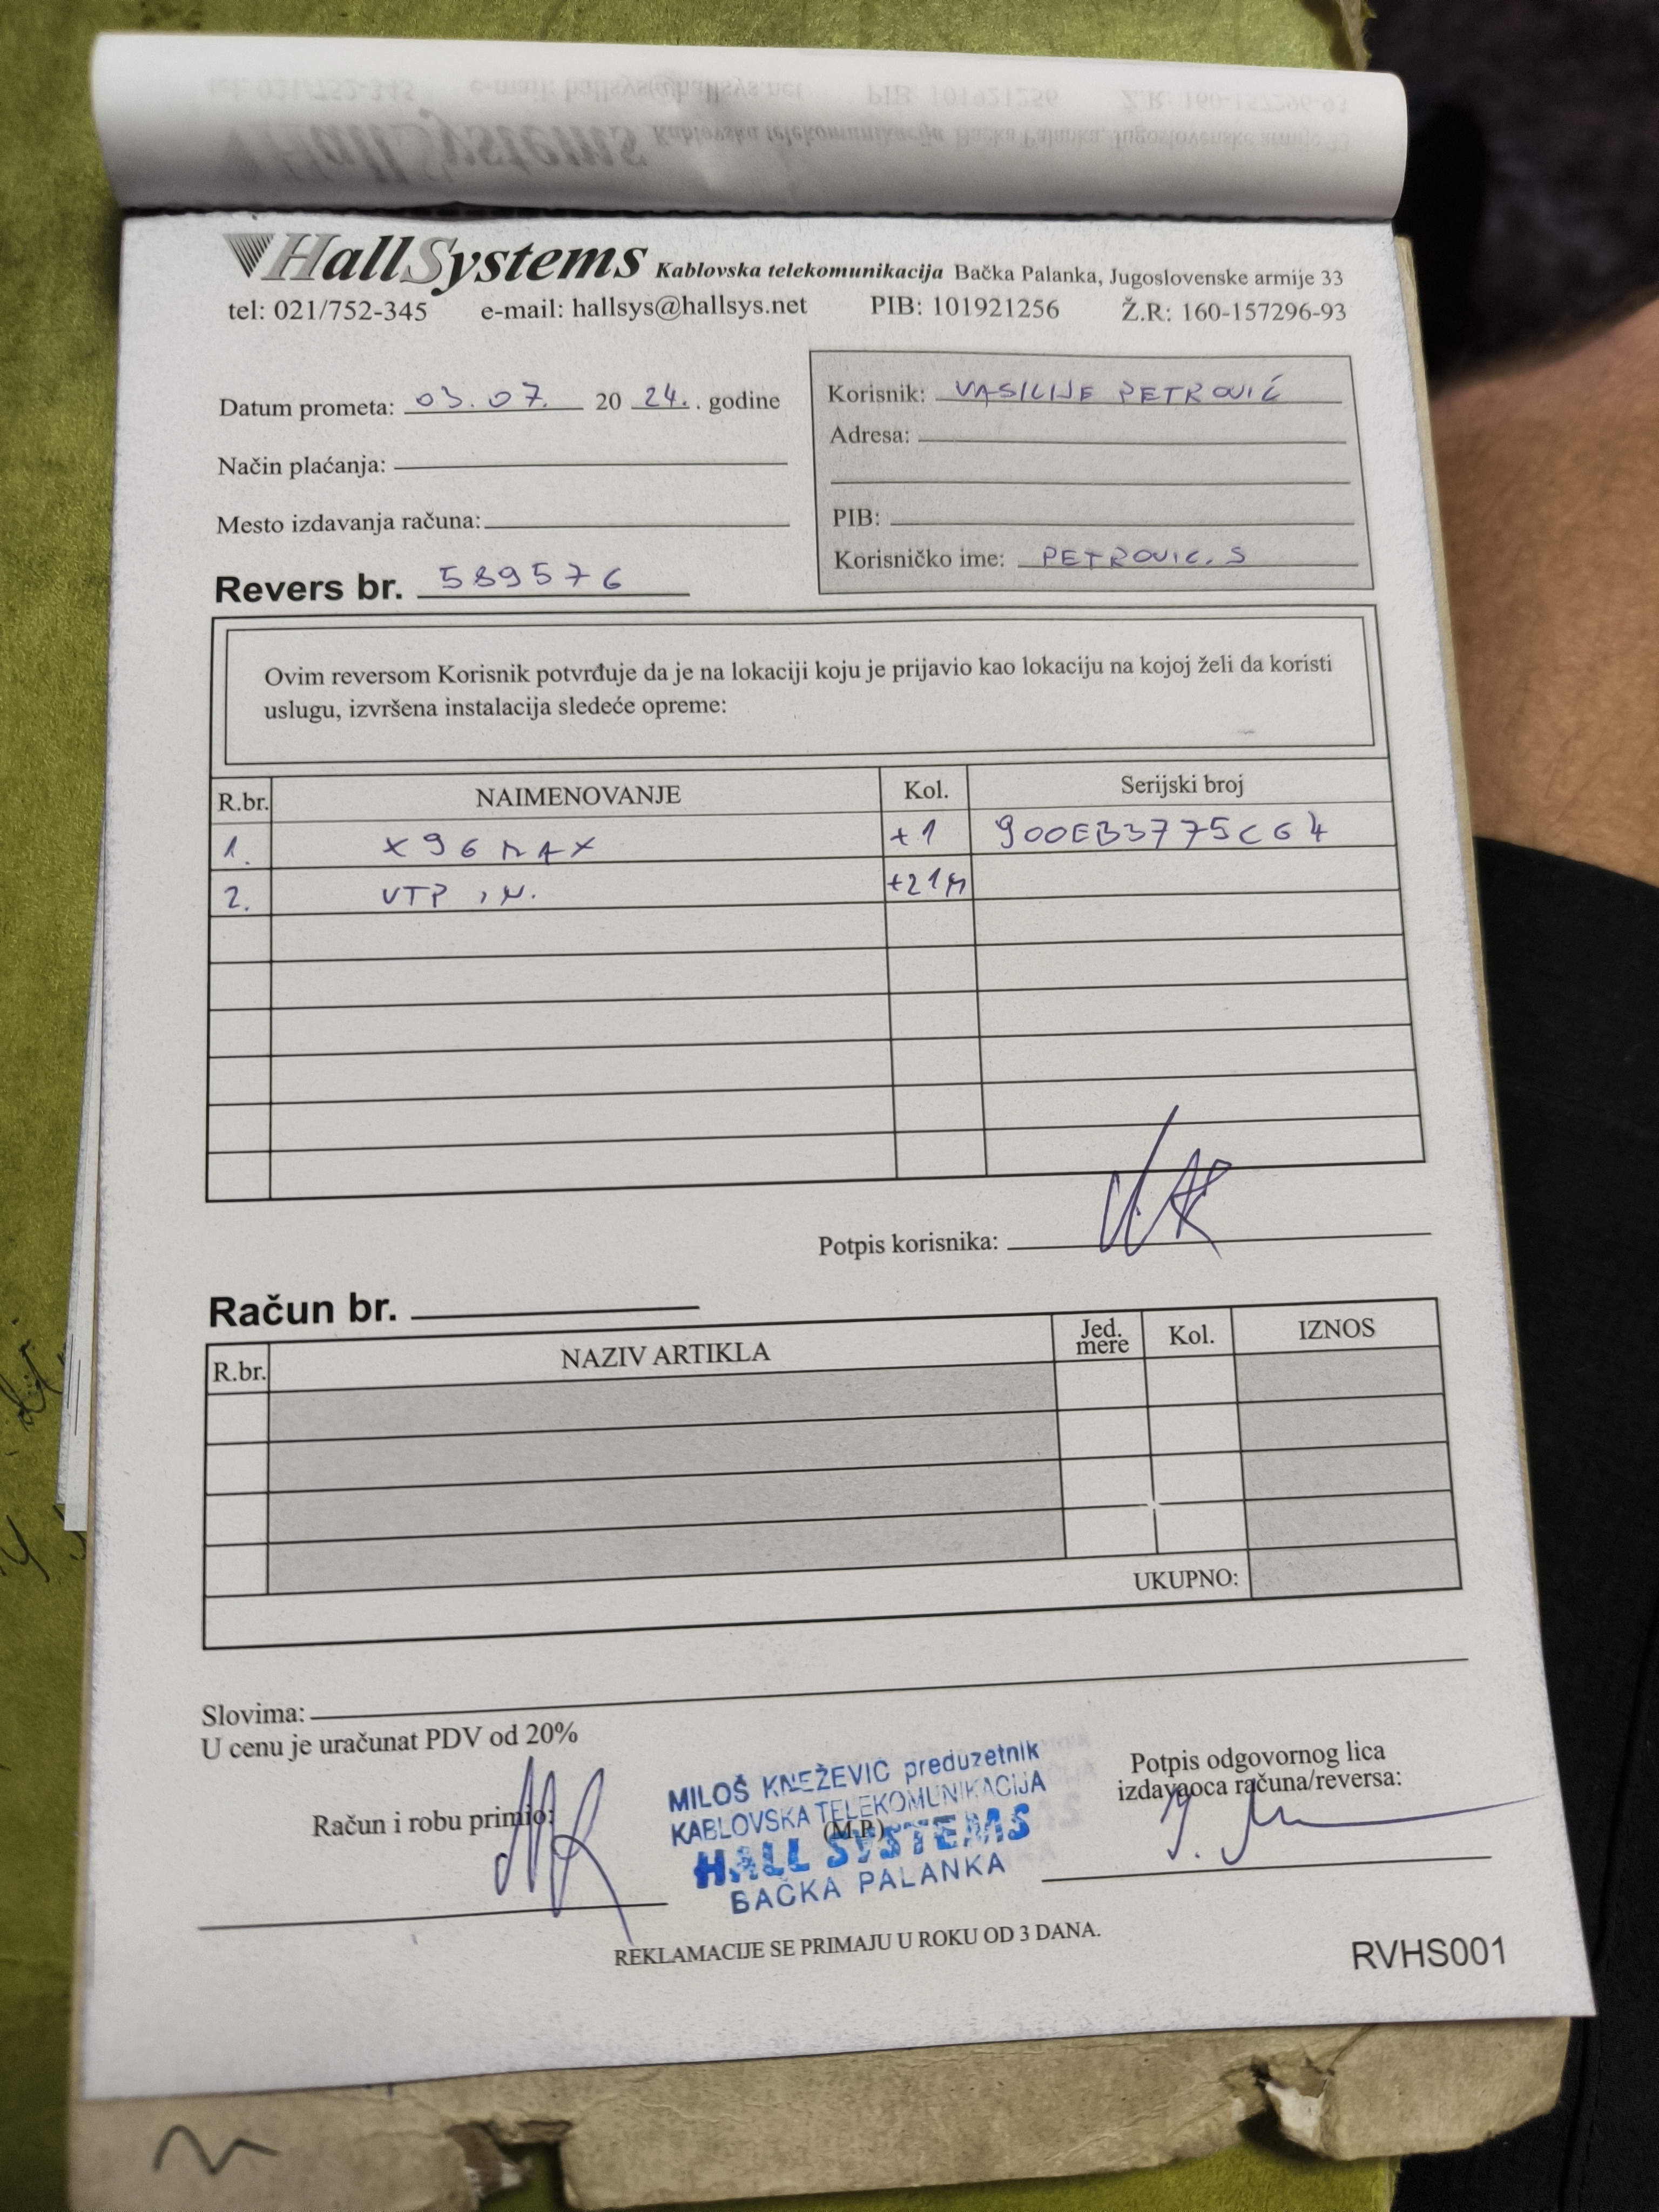 HallSystems Kablovska telekomunikacija Bačka Palanka, Jugoslovenske armije 33
tel: 021/752-345 e-mail: hallsys@hallsys.net PIB: 101921256 Ž.R: 160-157296-93
Datum prometa: 03.07. 20 24. . godine
Način plaćanja:
Mesto izdavanja računa:
Revers br. 589576
Korisnik: VASILIJE PETROVIĆ
Adresa:
PIB:
Korisničko ime: PETROVIC.S
Ovim reversom Korisnik potvrđuje da je na lokaciji koju je prijavio kao lokaciju na kojoj želi da koristi
uslugu, izvršena instalacija sledeće opreme:
R.br. NAIMENOVANJE Kol. Serijski broj
1. X96 MAX +1 900EB3775C64
2. UTP +21M
Potpis korisnika:
Račun br.
R.br. NAZIV ARTIKLA Jed. mere Kol. IZNOS
UKUPNO:
Slovima:
U cenu je uračunat PDV od 20%
Račun i robu primio:
MILOŠ KNEŽEVIĆ preduzetnik
KABLOVSKA TELEKOMUNIKACIJA
(M.P.)
HALL SYSTEMS
BAČKA PALANKA
Potpis odgovornog lica
izdavaoca računa/reversa:
REKLAMACIJE SE PRIMAJU U ROKU OD 3 DANA.
RVHS001